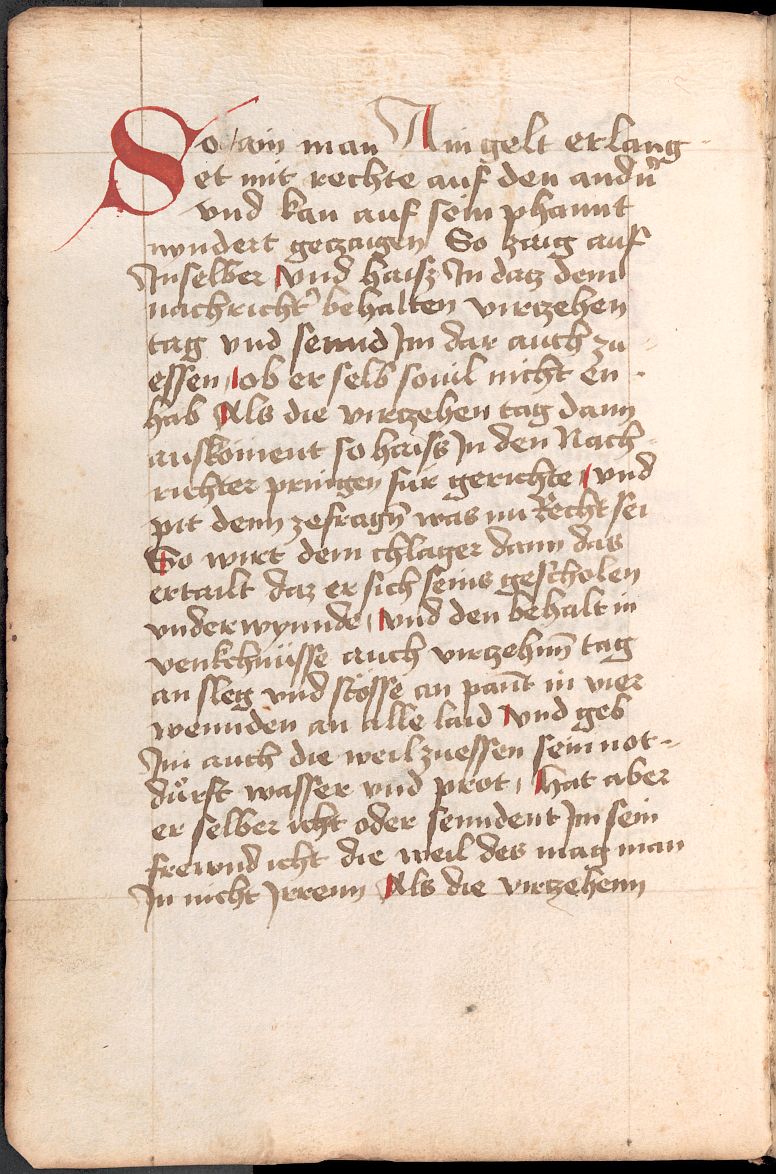 So ain man Ain gelt erlang-
et mit rechte auf den andn̄
vnd kan auf sein phannt
nyndert geczaigen So zaig auf
Inselber vnd haisz In dacz dem
nachricht̄ behalten virczehen
tag vnd sennd Im dar auch zu
essen, ob er selb souil nicht en-
hab Als die virczehen tag dann
auskoment so haiss In den Nach-
richter pringen für gerichte, vnd
pit denn zefragn̄ was nu Recht sei
So wirt dem chlager dann das
ertailt daz er sich seins gescholen
vnderwynnde, vnd den behalt in
venkchnüsse auch virczehnn̄ tag
an sleg vnd stösse an pant̄ in vier
wennden an alle laid vnd geb
Im auch die weil zuessen sein not-
dürft wasser vnd prot, hat aber
er selber icht oder senndent Im sein
frewnd icht die weil des mag man
In nicht Jrrenn Als die virczehenn